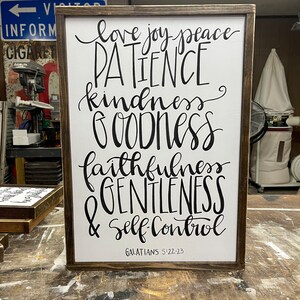 VISITOR
INFORM
CIGARET
love joy peace
PATIENCE
kindness
GOODNESS
faithfulness
GENTLENESS
& Self-Control
GALATIANS 5:22-23